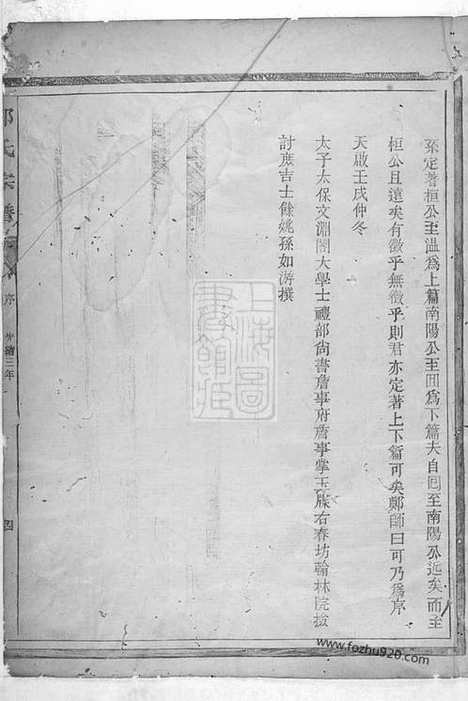 孫定著桓公至溫爲上篇南陽公至囬爲下篇夫自囬至南陽公近矣而至
桓公且遠矣有徵乎無徵乎則君亦定著上下篇可矣鄭師曰可乃爲序
天啟壬戌仲冬
太子太保文淵閣大學士禮部尙書詹事府詹事掌玉牒右春坊翰林院檢
討庶吉士餘姚孫如游撰
氏宗譜
序
光緒三年
四
上海圖書館藏
www.fozhu920.com